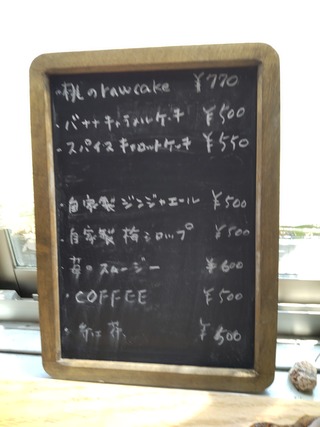 ・桃のrawcake ¥770
・バナナキャラメルケーキ ¥500
・スパイスキャロットケーキ ¥550
・自家製ジンジャエール ¥500
・自家製梅シロップ ¥500
・苺のスムージー ¥600
・COFFEE ¥500
・紅茶 ¥500